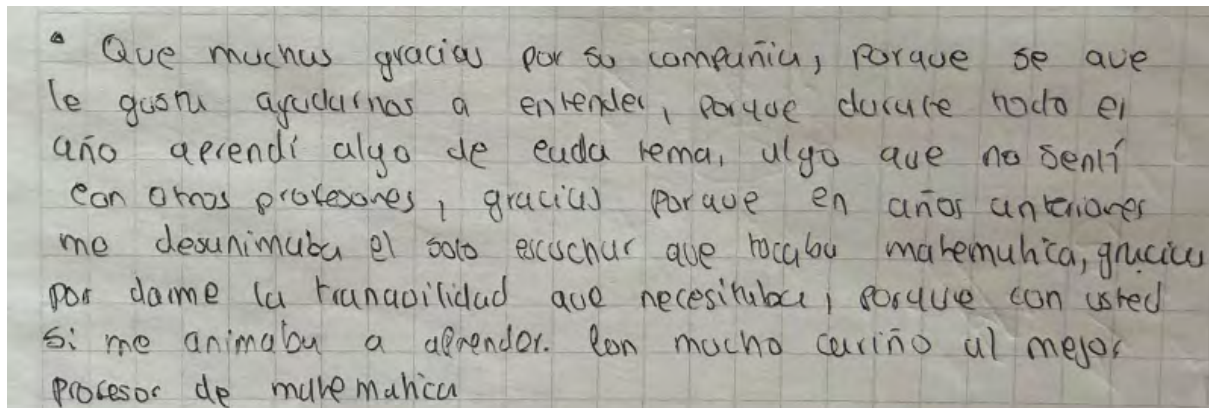 • Que muchas gracias por su compañia, porque se que
le gusta ayudarnos a entender, porque durate todo el
año aprendí algo de cada tema, algo que no sentí
con otros profesores, gracias porque en años anteriores
me desanimaba el solo escuschar que tocaba matematica, gracias
por darme la tranquilidad que necesitaba, porque con usted
si me animaba a aprender. Con mucho cariño al mejor
procesor de matematica